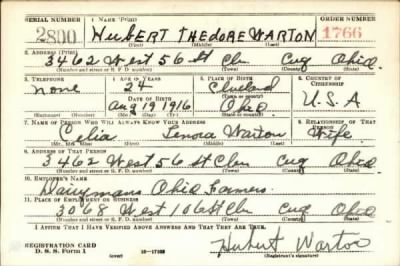 SERIAL NUMBER 1. NAME (Print) ORDER NUMBER
2800 HUBERT THEODORE WARTON 1766
(First) (Middle) (Last)
2. ADDRESS (Print)
3462 West 56 St Clev Cuy Ohio.
(Number and street or R. F. D. number) (Town) (County) (State)
3. TELEPHONE 4. AGE IN YEARS 5. PLACE OF BIRTH 6. COUNTRY OF CITIZENSHIP
None 24 Cleveland
DATE OF BIRTH (Town or county)
Aug 19 1916 Ohio. U.S.A
(Mo.) (Day) (Yr.) (State or country)
7. NAME OF PERSON WHO WILL ALWAYS KNOW YOUR ADDRESS 8. RELATIONSHIP OF THAT PERSON
Celia Lenora Warton Wife
(Mr., Mrs., Miss) (First) (Middle) (Last)
9. ADDRESS OF THAT PERSON
3462 West 56 St Clev Cuy Ohio.
(Number and street or R. F. D. number) (Town) (County) (State)
10. EMPLOYER'S NAME
Dairymans Ohio Farmers.
11. PLACE OF EMPLOYMENT OR BUSINESS
3068 West 106 St Clev Cuy Ohio.
(Number and street or R. F. D. number) (Town) (County) (State)
I AFFIRM THAT I HAVE VERIFIED ABOVE ANSWERS AND THAT THEY ARE TRUE.
REGISTRATION CARD
D. S. S. Form 1 (over) Hubert Warton
(Registrant's signature)